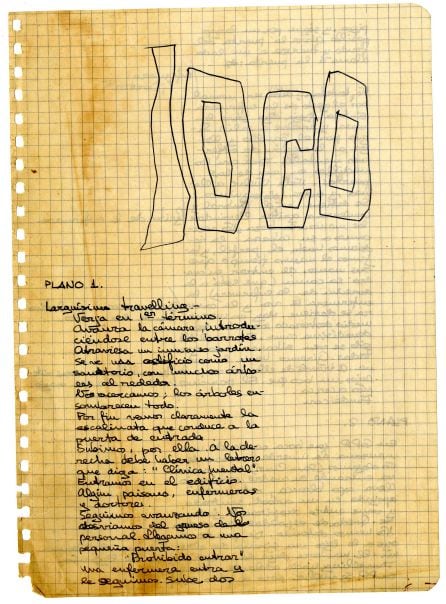 LOCO
PLANO 1.
Larguísimo travelling.-
Verja en 1er término.
Avanza la cámara, introdu-
ciéndose entre los barrotes
Atraviesa un inmenso jardín.
Se ve un edificio como un
sanatorio, con muchos árbo-
les al rededor.
Nos acercamos; los árboles en-
sombrecen todo.
Por fin vemos claramente la
escalinata que conduce a la
puerta de entrada.
Subimos, por ella. A la de-
recha debe haber un letrero
que diga: "Clínica mental".
Entramos en el edificio.
Algún paisano, enfermeras
y doctores.
Seguimos avanzando. Nos
desviamos del grueso de
personal. Llegamos a una
pequeña puerta:
"Prohibido entrar"
una enfermera entra y
le seguimos. Sube dos